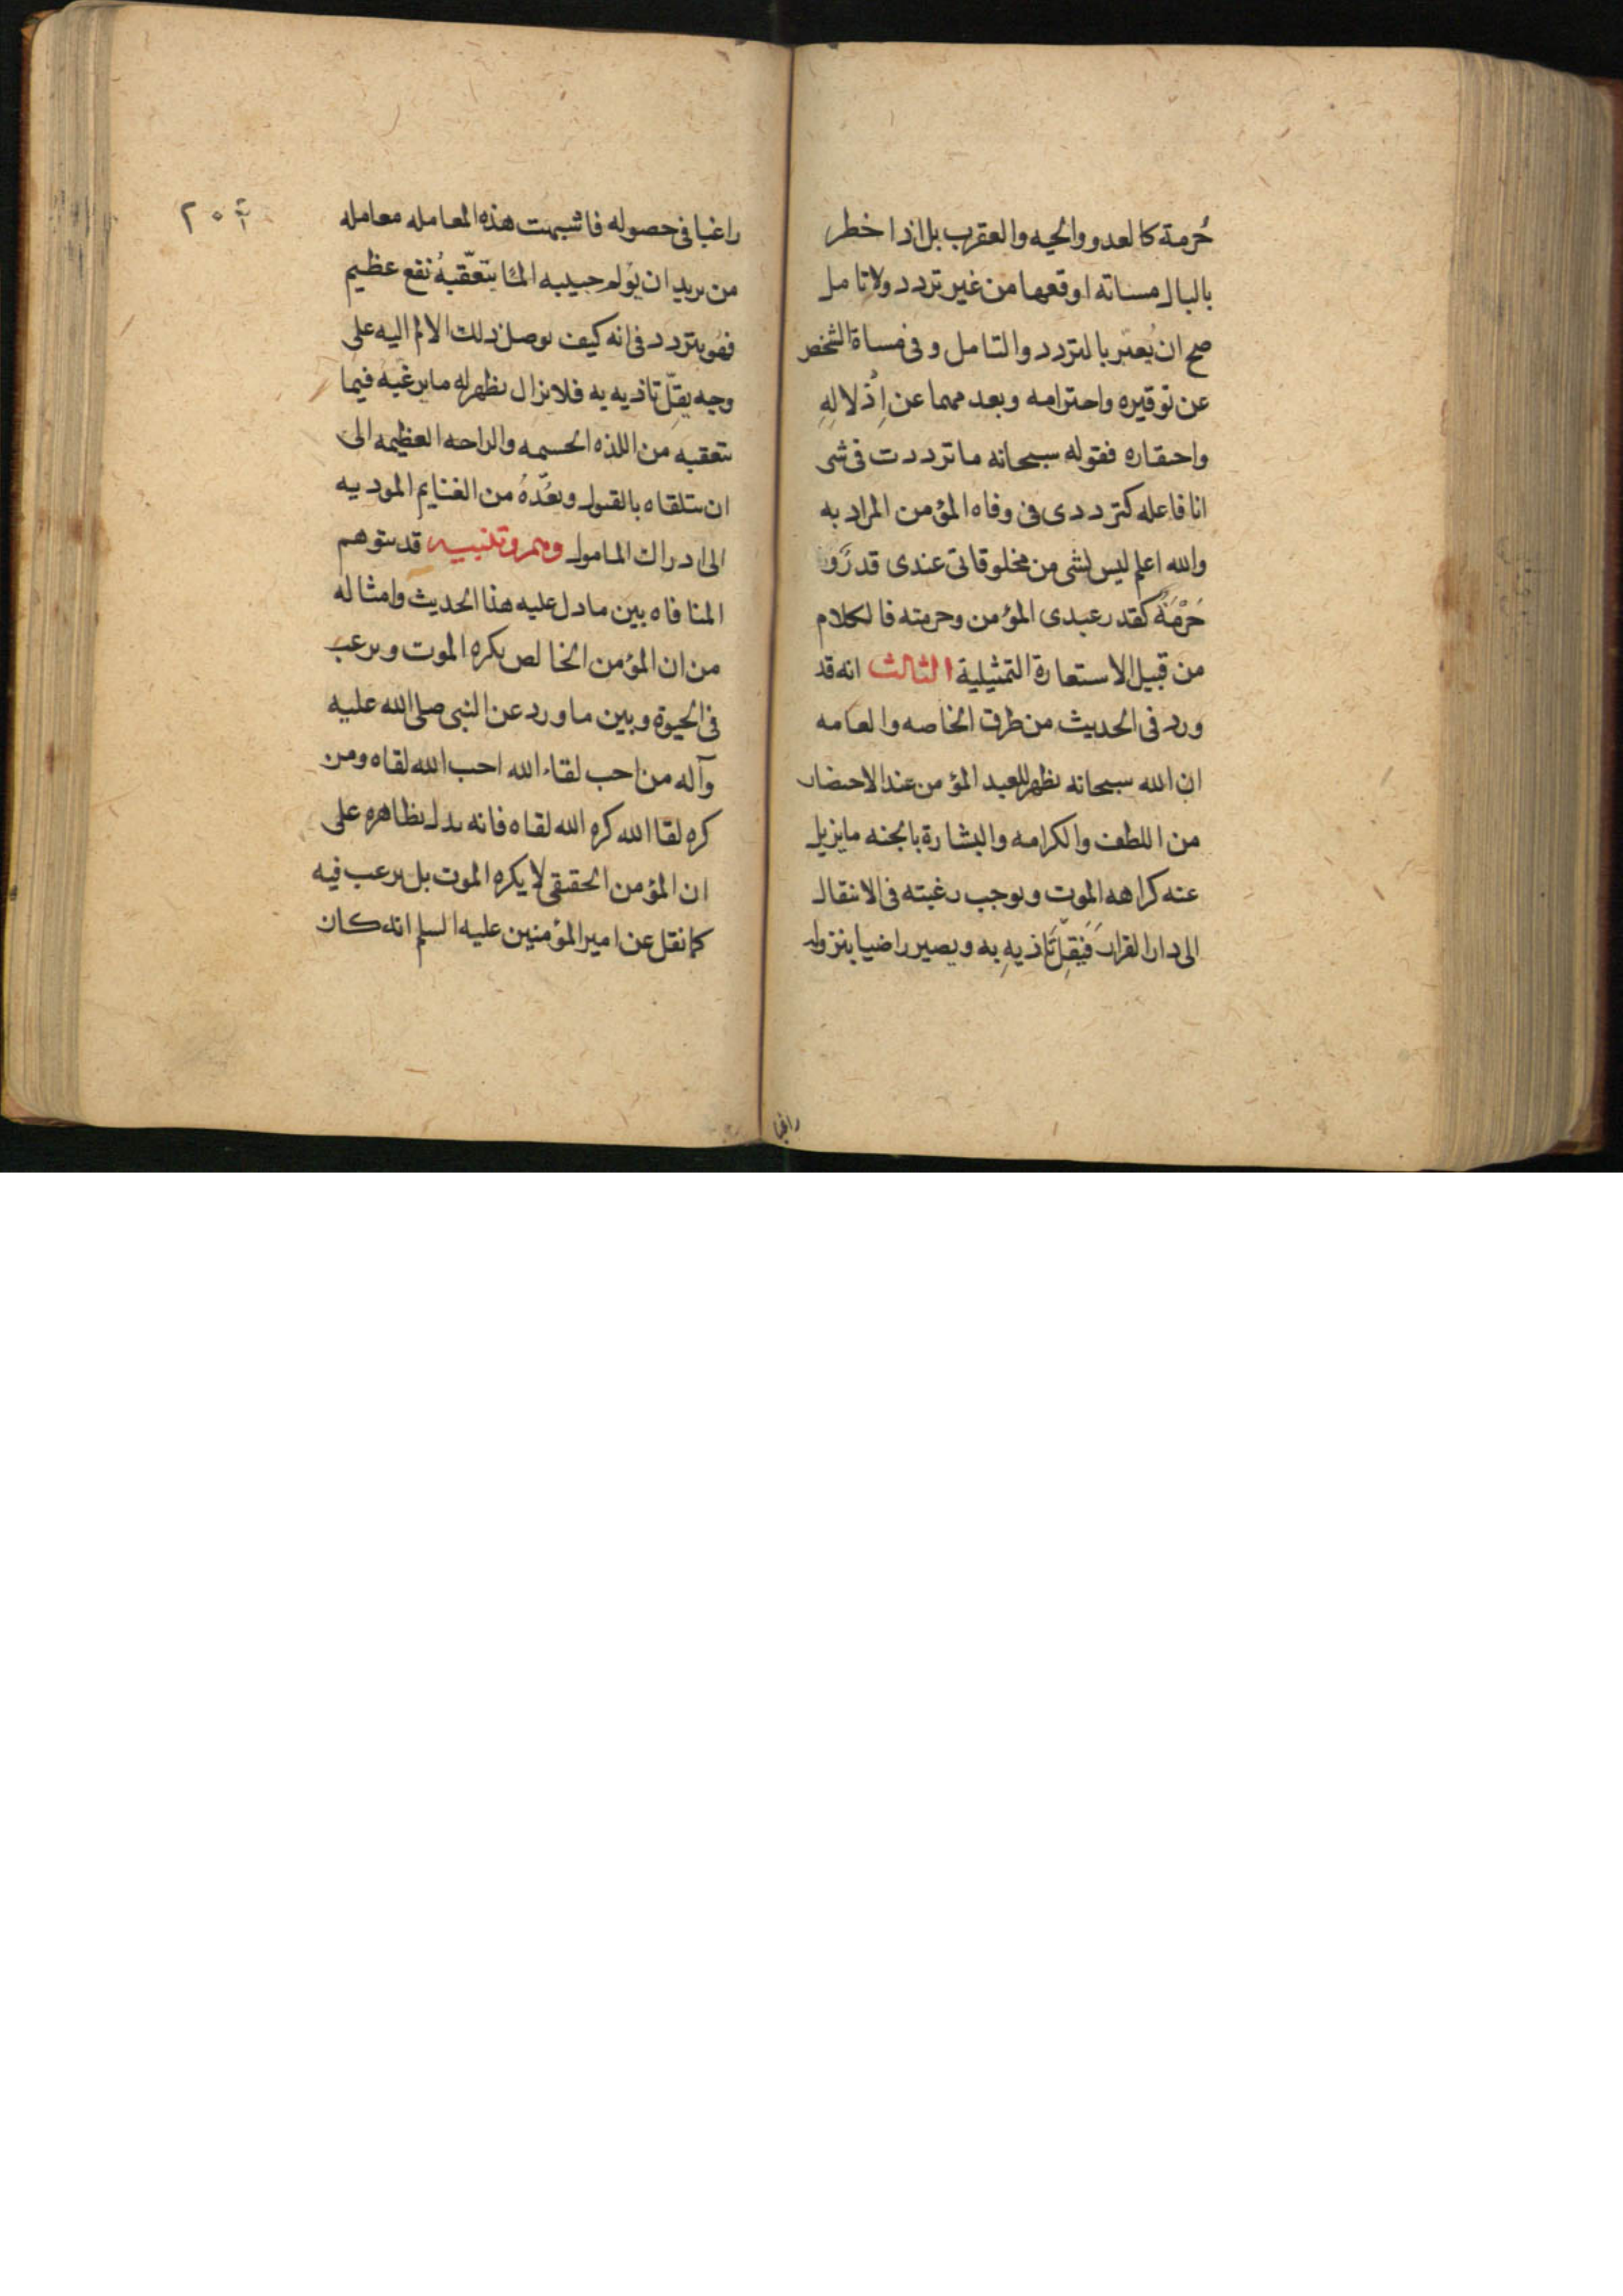 حُرمة كالعدو والحيه والعقرب بل اذا خطر
بالبال مساته اوقعها من غير تردد ولا تامل
صح ان يُعبّر بالتردد والتامل و فى مساة الشخص
عن توقيره واحترامه وبعدمهما عن اِذلالِهِ
واحتقاره فقوله سبحانه ما ترددت فى شى
انا فاعله كترددى فى وفاه المؤمن المراد به
والله اعلم ليس لشى من مخلوقاتى عندى قدرٌ و
حُرْمَةٌ كقدر عبدى المؤمن وحرمته فالكلام
من قبيل الاستعارة التمثيلية الثالث انه قد
ورد فى الحديث من طرق الخاصه والعامه
ان الله سبحانه يظهر للعبد المؤمن عند الاحتضار
من اللطف والكرامه والبشارة بالجنه مايزيل
عنه كراهه الموت ويوجب رغبته فى الانتقال
الى دار القرار فَيَقِلّ تَاذيهِ به ويصير راضيا بنزوله
راغبا
٢٠٤
راغبا فى حصوله فاشبهت هذه المعامله معامله
من يريد ان يؤلم حبيبه المًا يَتَعَقّبهُ نفع عظيم
فهو يتردد فى انه كيف يوصل ذلك الالم اليه على
وجه يقِلّ تاذيه به فلا يزال يظهر له ما يرغبه فيما
يتعقبه من اللذه الجسمه والراحه العظيمه الى
ان يتلقاه بالقبول ويعُدّهُ من الغنايم الموديه
الى ادراك المامول وهم وتنبيه قد يتوهم
المنافاه بين ما دل عليه هذا الحديث وامثاله
من ان المؤمن الخالص يكره الموت ويرغب
فى الحيوة وبين ما ورد عن النبى صلى الله عليه
وآله من احب لقاء الله احب الله لقاه ومن
كره لقا الله كره الله لقاه فانه يدل بظاهره على
ان المؤمن الحقيقى لا يكره الموت بل يرغب فيه
كما نقل عن امير المؤمنين عليه السلم انه كان